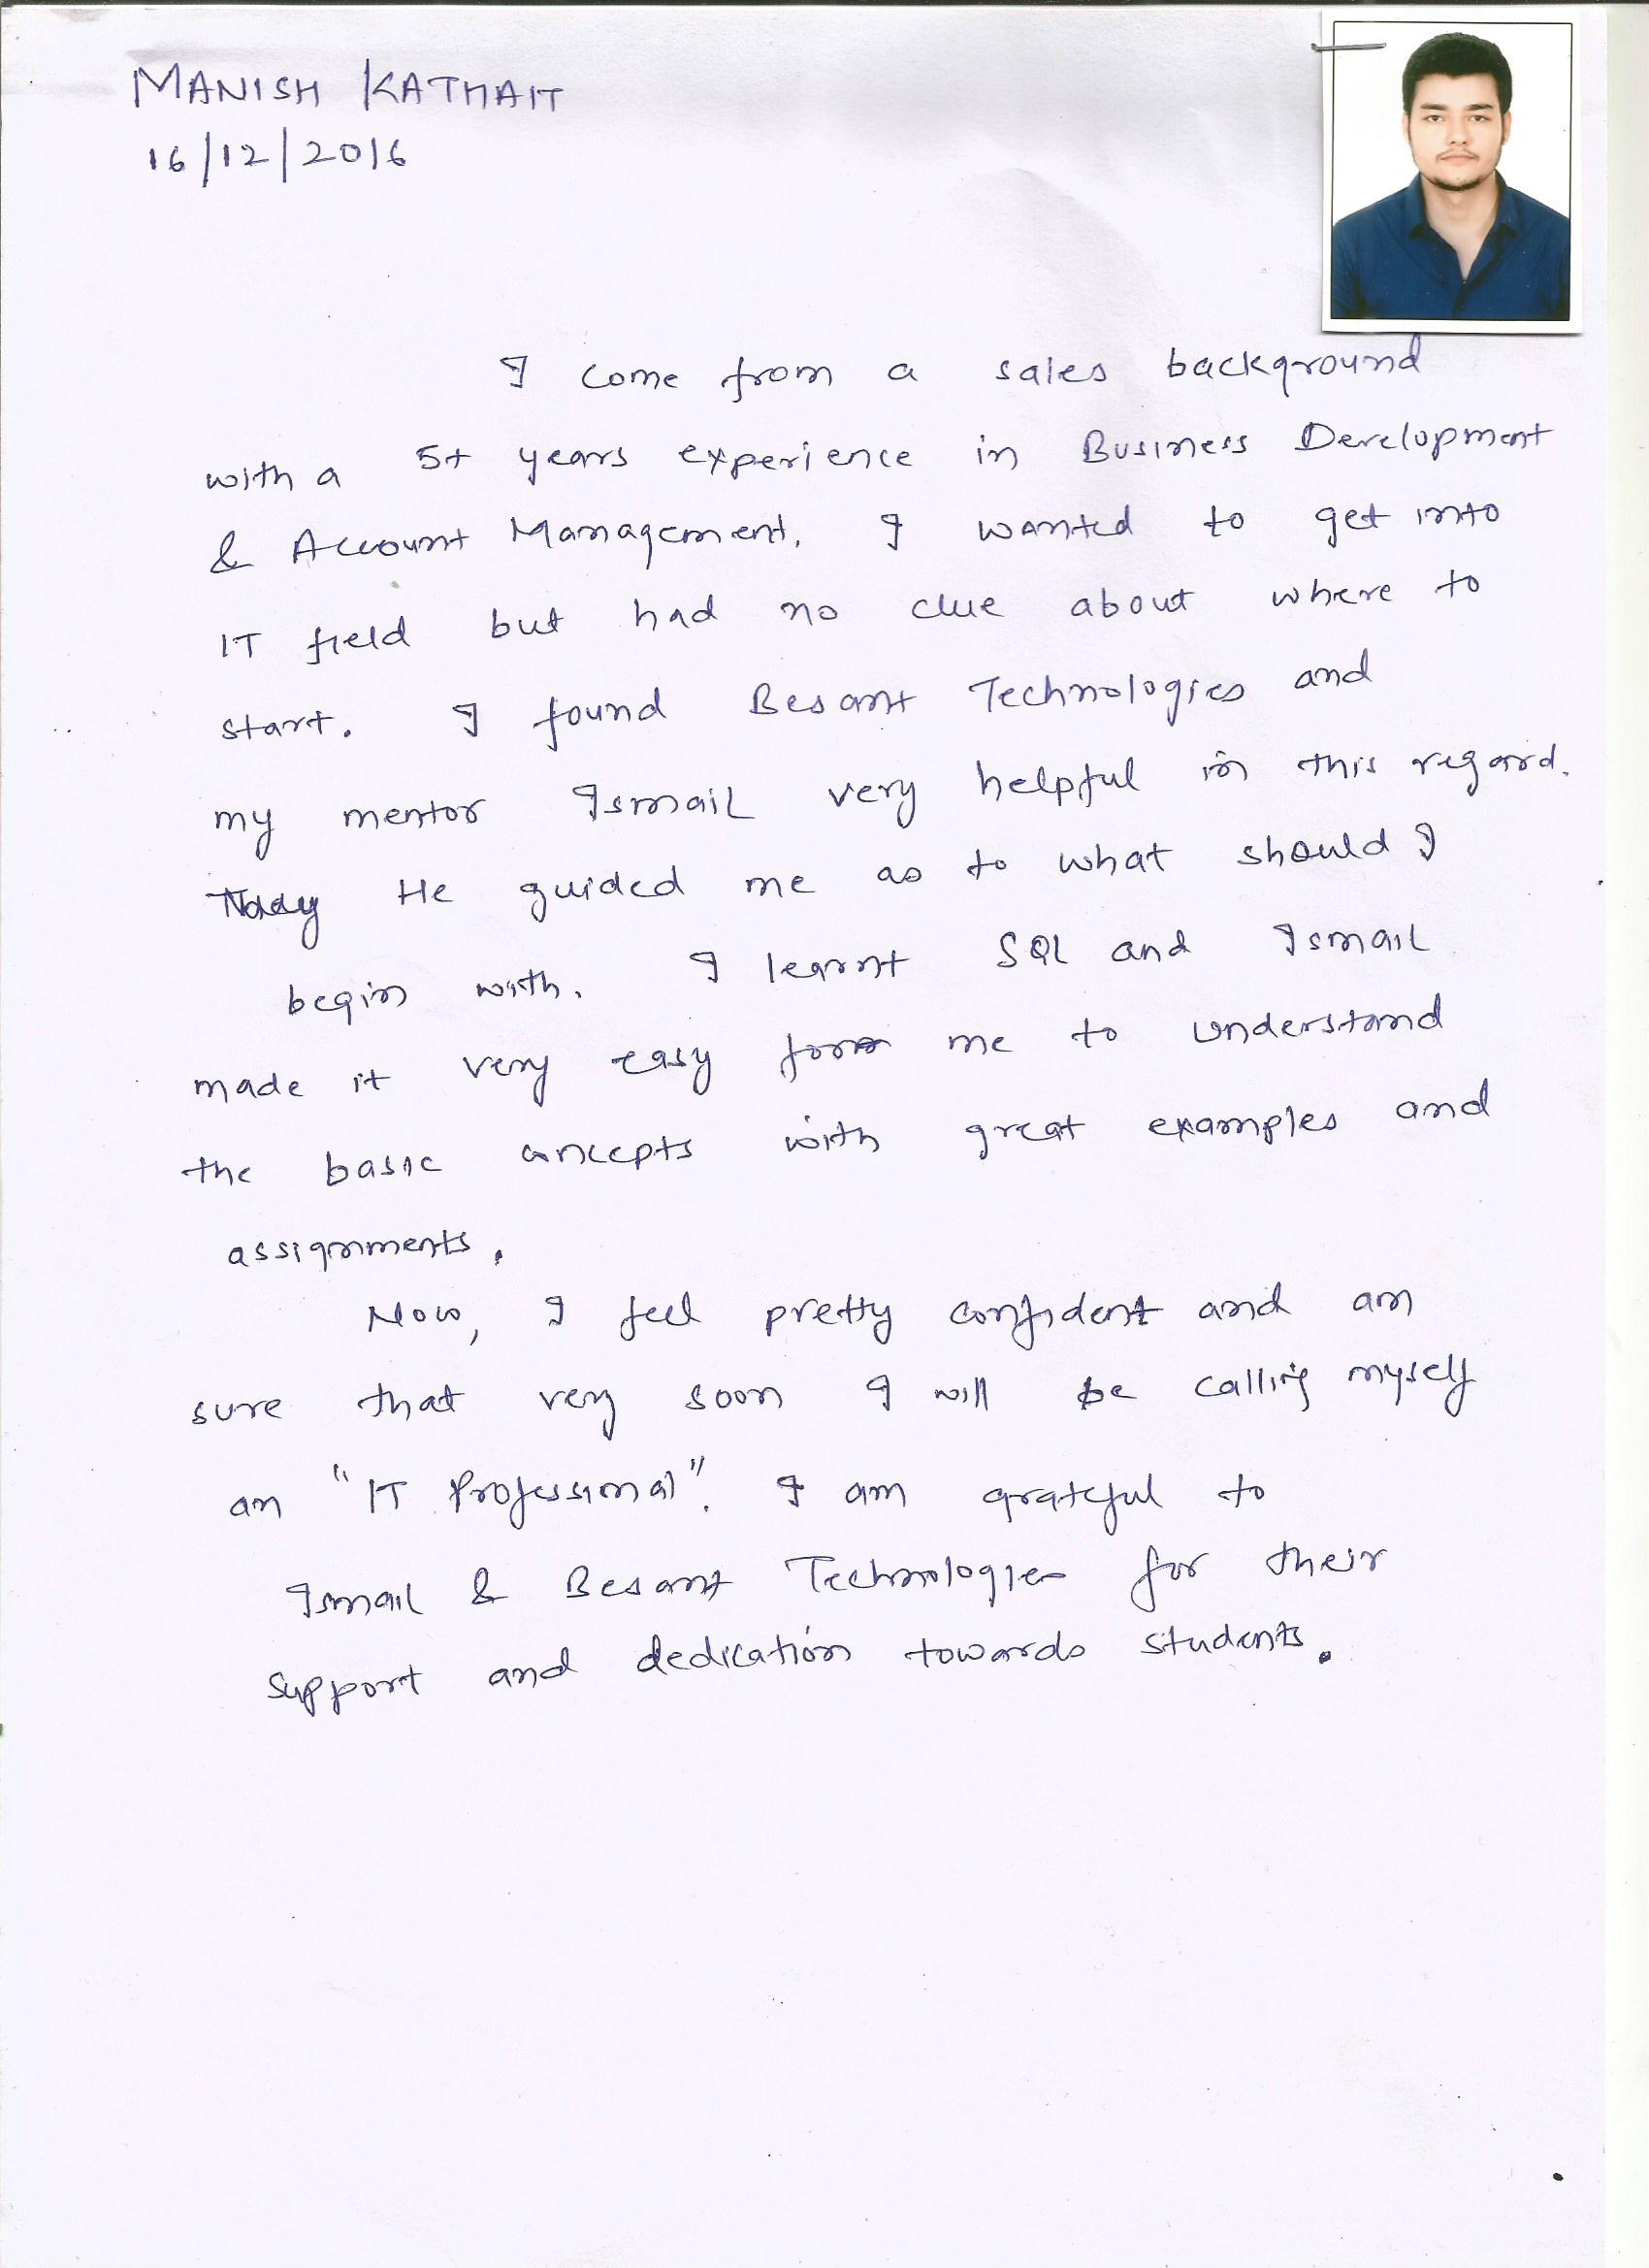 MANISH KATHAIT
16/12/2016
I come from a sales background
with a 5+ years experience in Business Development
& Account Management. I wanted to get into
IT field but had no clue about where to
start. I found Besant Technologies and
my mentor Ismail very helpful in this regard.
He guided me as to what should I
begin with. I learnt SQL and Ismail
made it very easy for me to understand
the basic concepts with great examples and
assignments.
Now, I feel pretty confident and am
sure that very soon I will be calling myself
an "IT Professional". I am grateful to
Ismail & Besant Technologies for their
support and dedication towards students.